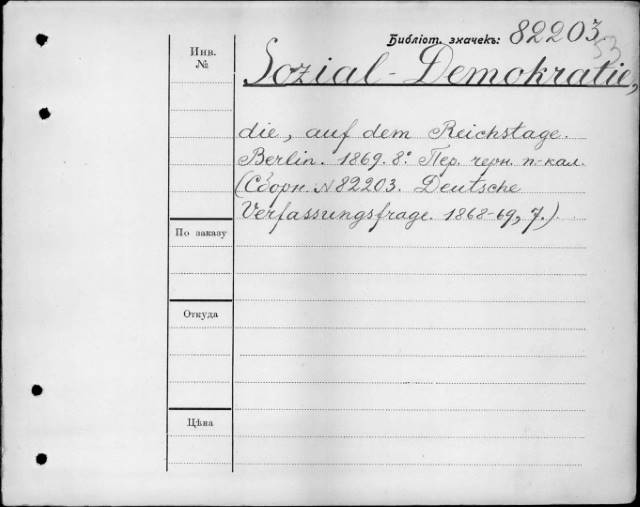 Библіот. значекъ: 82203
53
Инв.
№
Sozial-Demokratie,
die, auf dem Reichstage.
Berlin. 1869. 8º. Пер. черн. п-кал.
(Сборн. №82203. Deutsche
Verfassungsfrage. 1868-69, 7.)
По заказу
Откуда
Цѣна